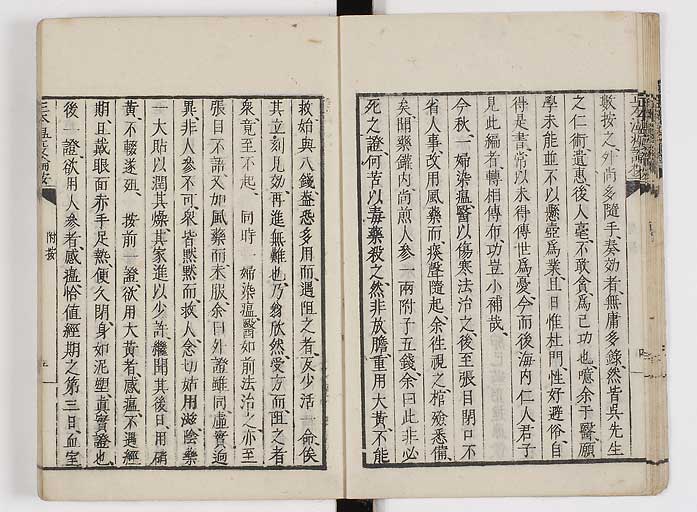 數按之外尚多隨手奏効者無庸多錄然皆吳先生
之仁術遺惠後人毫不敢貪爲己功也噫余于醫願
學未能並不以懸壺爲業且日惟杜門性好避俗自
得是書常以未得傳世爲憂今而後海內仁人君子
見此編者轉相傳布功豈小補哉
今秋一婦染瘟醫以傷寒法治之後至張目閉口不
省人事改用風藥而痰聲隨起余徃視之棺殮悉備
矣聞藥鑵內尚煎人參一兩附子五錢余曰此非必
死之證何苦以毒藥殺之然非放膽重用大黃不能
救始與八錢盡悉多用而遇阻之者反少活一命俟
其立刻見効再進無難也乃翁欣然受方而阻之者
衆竟至不起 同時一婦染瘟醫如前法治之亦至
張目不語又加風藥而未服余曰外證雖同虛實逈
異非人參不可衆皆黙黙而救人念切姑用滋陰藥
一大貼以潤其燥其家進以少許繼聞其後日用硝
黃不輟遂歿 按前一證欲用大黃者感瘟不遇經
期且戴眼面赤手足熱便久閉身如泥塑眞實證也
後一證欲用人參者感瘟恰値經期之第三日血室
附按